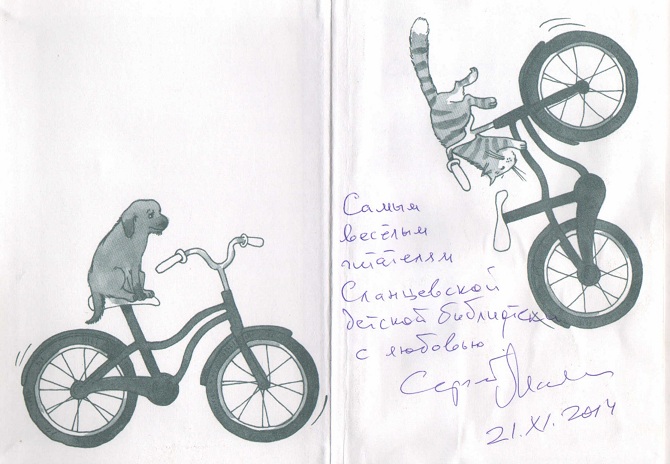 Самым
весёлым
читателям
Сланцевской
детской библиотеки
с любовью!
Сергей
21.XI.2014